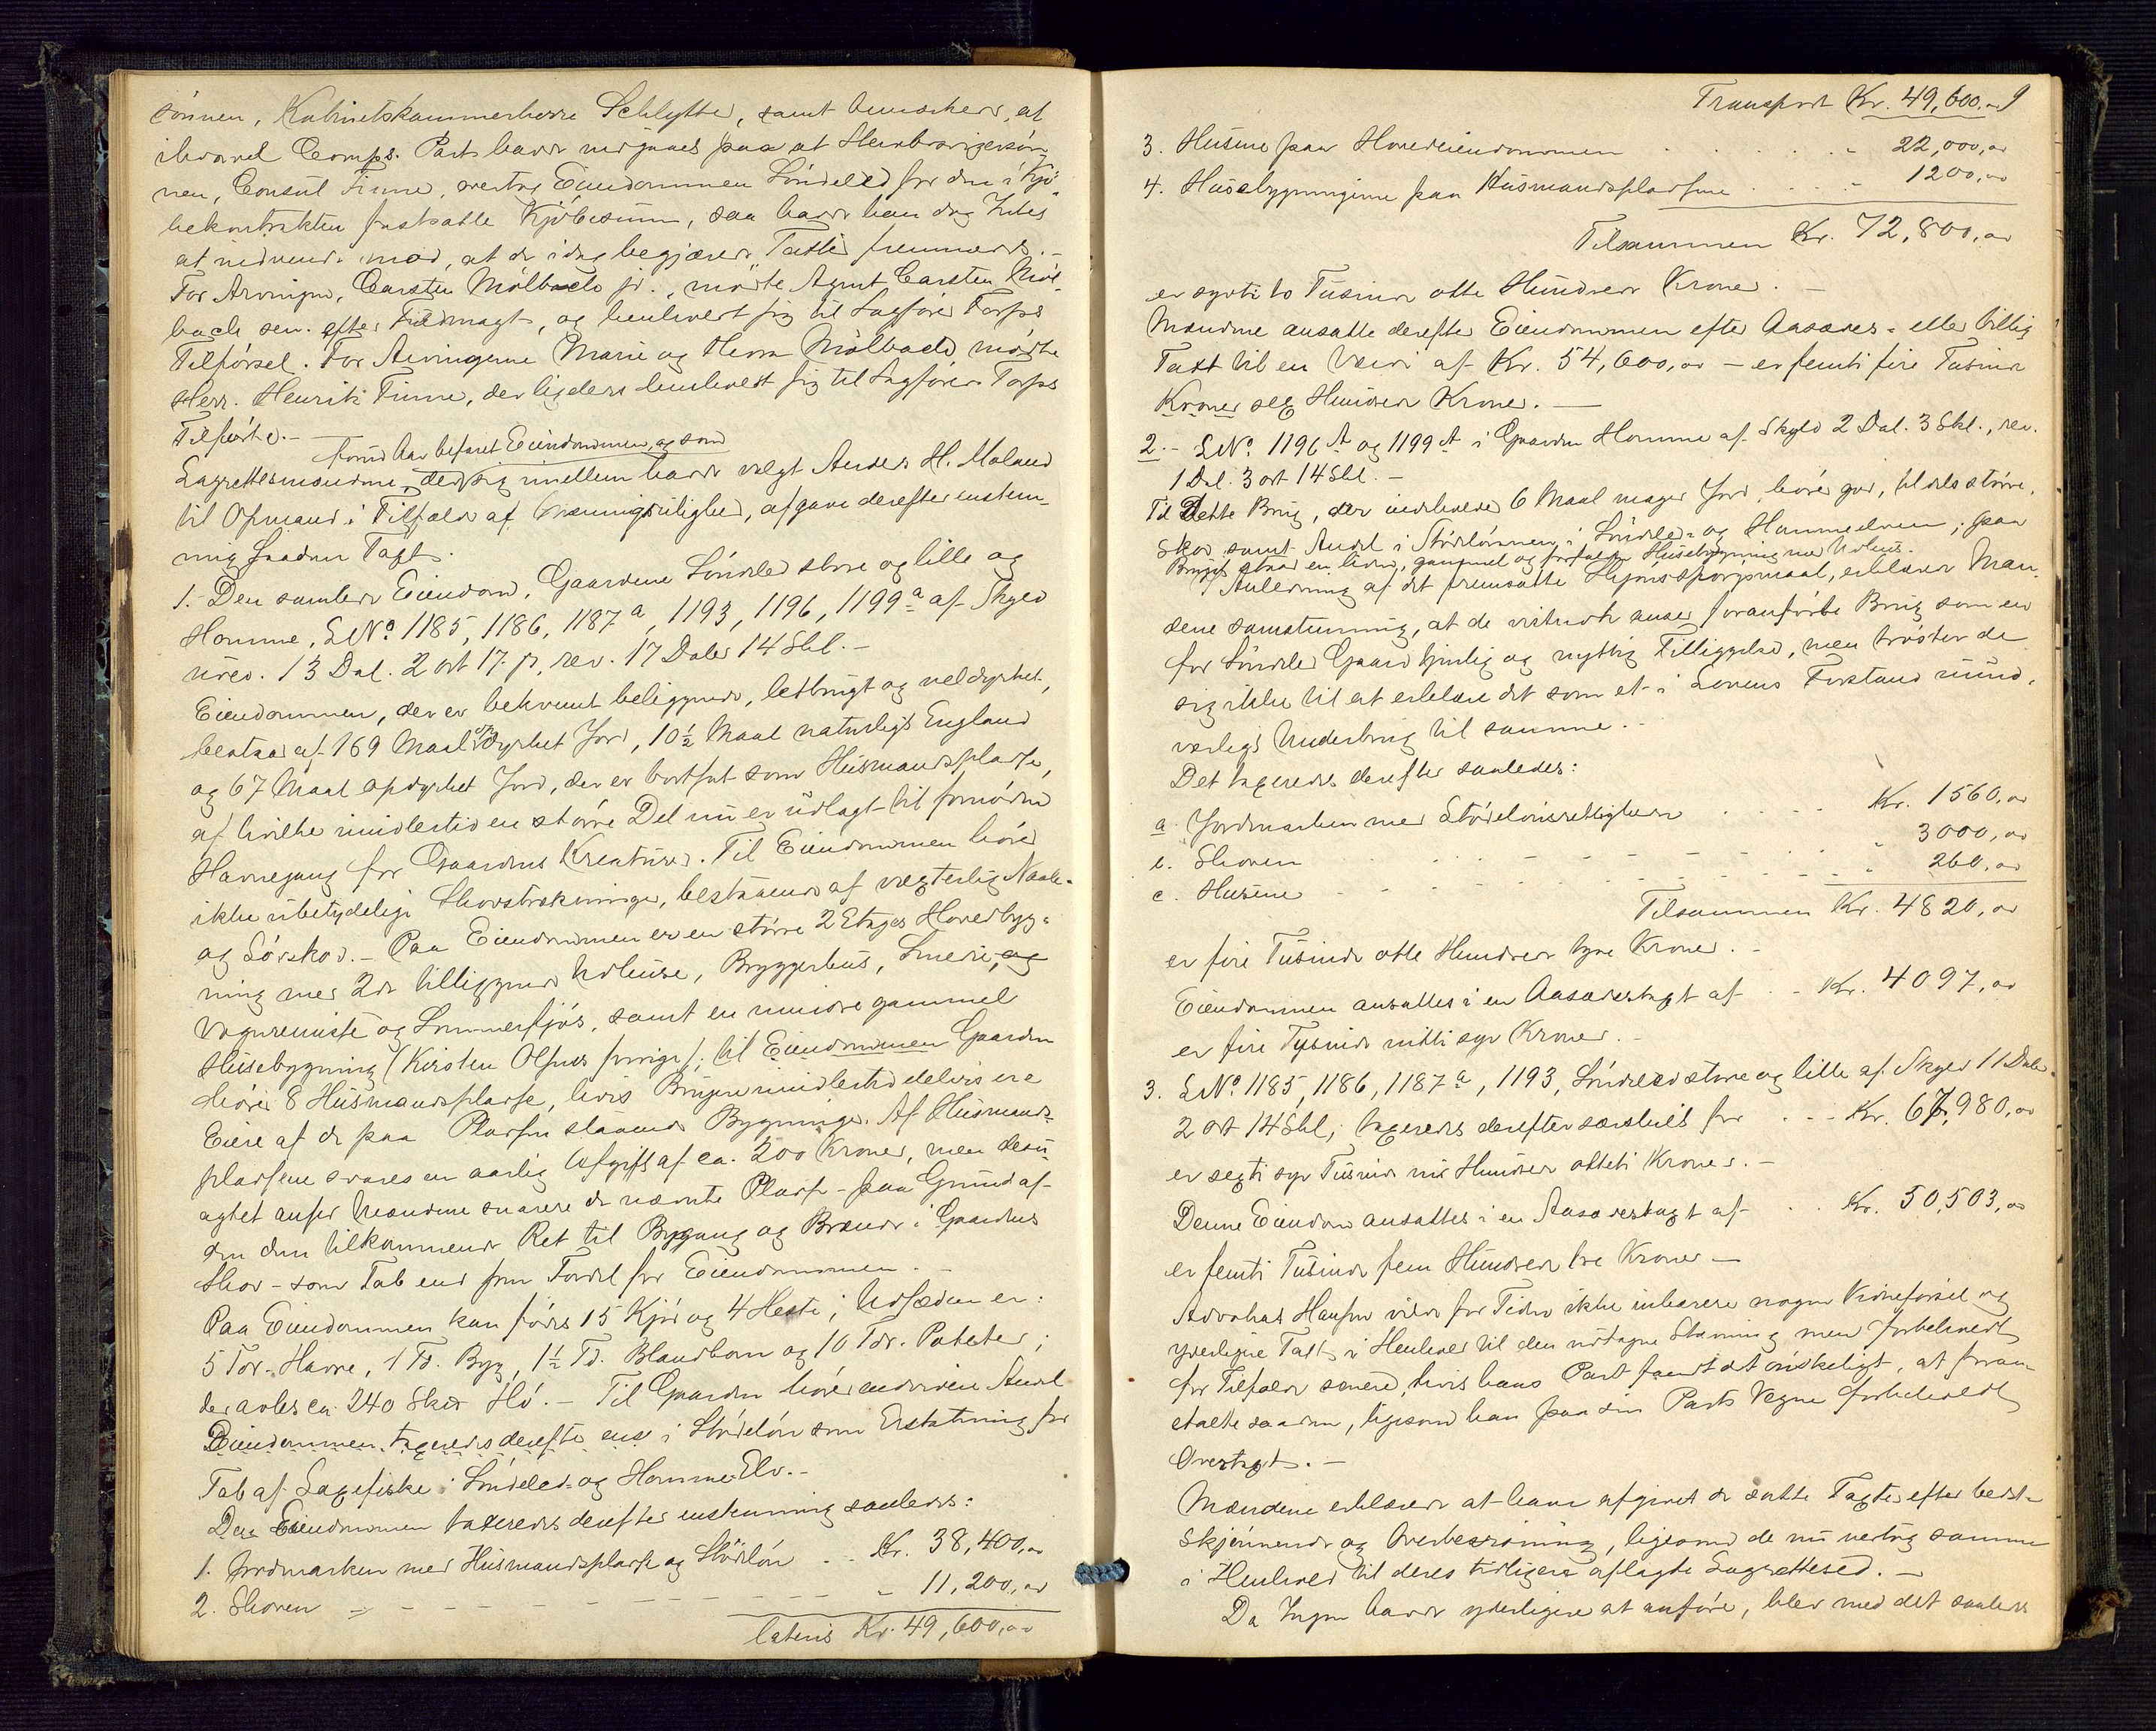 sönnen, Kabinetskammerherre Schlytter, samt bemærkede, at
ihvorvel Comps. Part havde indgaaet paa at Stervbosvigersön-
nen, Consul Finne, overtog Eiendommen Söndeled for den i Kjö-
bekontrakten fastsatte Kjöbesum, saa havde han dog Intet
at indvende mod, at de idag begjærede Taxter fremmedes.-
For Arvingen, Carsten Mölbach jr., mödte Agent Carsten Möl-
bach sen. efter Fuldmagt, og henholdt sig til Sagförer Torps
Tilförsel. For Arvingerne Marie og Herra Mölbach mödte
Herr. Henrik Finne, der ligeledes henholdt sig til Sagförer Torps
Tilförte.-
forud har befaret Eiendommen, og som
Lagrettesmændene, der sig imellem havde valgt Anders H. Moland
til Opmand i Tilfælde af Meningsulighed, afgave derefter enstem-
mig saadan Taxt.
1.- Den samlede Eiendom, Gaardene Söndeled store og lille og
Homme, LNo 1185, 1186, 1187 a, 1193, 1196, 1199 a af Skyld
urev. 13 Dal. 2 ort 17 β, rev. 17 Daler 14 Skl.-
Eiendommen, der er bekvemt beliggende, letbrugt og veldyrket,
bestaar af 169 Maal opdyrket Jord, 10½ Maal naturligt England
og 67 Maal opdyrket Jord, der er bortsat som Husmandspladse,
af hvilke imidlertid en större Del nu er udlagt til fornöden
Havnegang for Gaardens Kreaturer. Til Eiendommen hörer
ikke ubetydelige Skovstrækninger, bestaaende af vægterlig Naale-
og Lövskov.- Paa Eiendommen er en större 2 Etages Hovedbyg-
ning med 2de tilliggende Udhuse, Bryggerhus, Smedie, og
Vognremise og Sommerfjös, samt en mindre gammel
Husebygning (Kirsten Olsens forrige); til Eiendommen Gaarden
hörer 8 Husmandspladse, hvis Brugere imidlertid delvis ere
Eiere af de paa Pladsen staaende Bygninger. Af Husmands-
pladsene svares en aarlig Afgift af ca. 200 Kroner, men desu-
agtet anser Mændene snarere de nævnte Pladse - paa Grund af
den dem tilkommende Ret til Bygang og Brænde i Gaardens
Skov - som Tab end som Fordel for Eiendommen.-
Paa Eiendommen kan födes 15 Kjör og 4 Heste; Udsæden er:
5 Tdr. Havre, 1 Td. Byg, 1½ Td. Blandkorn og 10 Tdr. Poteter;
der avles ca. 240 Skd Hö.- Til Gaarden hörer endvidere Andel
Eiendommen taxeredes derefter ens i Stördelön som Erstatning for
Tab af Laxefiske i Söndeled- og Homme Elv.-
Den Eiendommen taxeredes derefter enstemmig saaledes:
1. Jordmarken med Husmandspladse og Stördlön .. Kr. 38,400,00
2. Skoven - - - - - - - - - - „ 11,200,00
lateris Kr. 49,600,00
Transport Kr. 49,600,00 9
3. Husene paa Hovedeiendommen . . . . . . „ 22,000,00
4. Husebygningerne paa Husmandspladsene . . . . „ 1200,00
Tilsammen Kr. 72,800,00
er sytti to Tusinde otte Hundrede Kroner.-
Mændene ansatte derefter Eiendommen efter Aasædes- eller billig
Taxt til en Værdi af Kr. 54,600,00 - er femti fire Tusinde
Kroner sex Hundrede Kroner.-
2.- LNo. 1196 A og 1199 A i Gaarden Homme af Skyld 2 Dal. 3 Skl., rev.
1 Dal. 3 ort 14 Skl.-
Til Dette Brug, der indeholder 6 Maal mager Jord, hörer god, tildels större,
Skov samt Andel i Stördlönnen i Söndeled- og Hommeelven; paa
Bruget staar en liden, gammel og forfalden Husebygning med Udhus.
I Anledning af det fremsatte Skjönsspörgsmaal, erklærer Mæn-
dene samstemmig, at de vistnok anser foranförte Brug som en
for Söndeled Gaard tjenlig og nyttig Tilliggelse, men tröster de
sig ikke til at erklære det som et i Lovens Forstand nöd-
vendigt Underbrug til samme.-
Det taxeredes derefter saaledes:
a. Jordmarken med Stördelönsrettigheden . . . . Kr. 1560,00
b. Skoven . . . - - - - - „ 3000,00
c. Husene - - - - - - - - - „ 260,00
Tilsammen Kr. 4820,00
er fire Tusinde otte Hundrede tyve Kroner.-
Eiendommen ansattes i en Aasædestaxt af .. Kr. 4097,00
er fire Tusinde nitti syv Kroner.-
3. LNo. 1185, 1186, 1187 a, 1193, Söndeled store og lille af Skyld 11 Daler
2 ort 14 Skl, taxeredes derefter særskilt for . . . Kr. 67,980,00
er sexti syv Tusinde ni Hundrede otteti Kroner.-
Denne Eiendom ansattes i en Aasædestaxt af . . Kr. 50,503,00
er femti Tusinde fem Hundrede tre Kroner -
Advokat Hansen vilde for Tiden ikke indlevere nogen Vidneförsel og
yderligere Taxt i Henhold til den udtagne Stævning men forbeholdt
for Tilfælde senere, hvis hans Part fandt det önskeligt, at foran-
stalte saadan, ligesom han paa sin Parts Vegne forbeholdt
Overtaxt.-
Mændene erklærede at have afgivet de satte Taxter efter bedst-
Skjönnende og Overbevisning, ligesom de nu vedtog samme
i Henhold til deres tidligere aflagte Lagrettesed.-
Da Ingen havde yderligere at anföre, blev med det saaledes